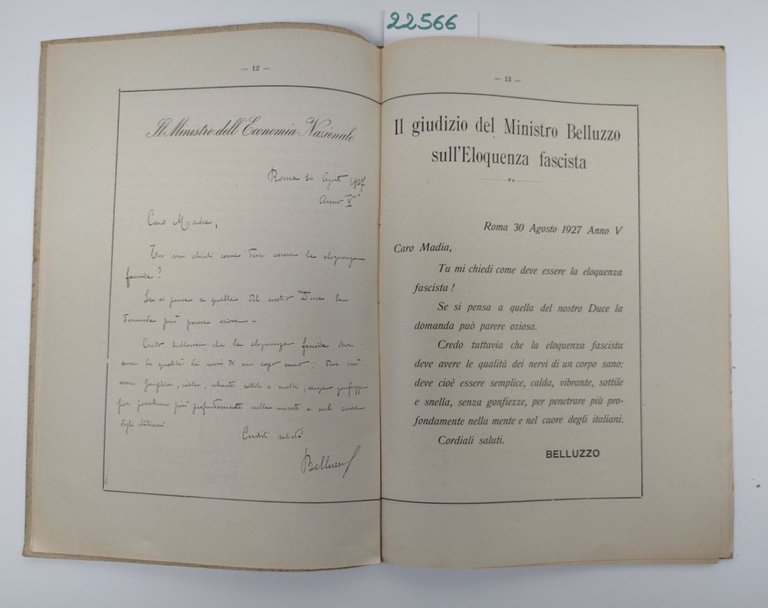 22566
— 12 —
Il Ministro dell'Economia Nazionale
Roma 30 Agosto 1927
Anno V°
Caro Madia,
Tu mi chiedi come deve essere la eloquenza
fascista?
Se si pensa a quella del nostro Duce la
domanda può parere oziosa.
Credo tuttavia che la eloquenza fascista deve
avere le qualità dei nervi di un corpo sano: deve cioè
essere semplice, calda, vibrante sottile e snella, senza gonfiezze
per penetrare più profondamente nella mente e nel cuore
degli italiani
Cordiali saluti
Belluzzo
— 13 —
Il giudizio del Ministro Belluzzo
sull'Eloquenza fascista
Roma 30 Agosto 1927 Anno V
Caro Madia,
Tu mi chiedi come deve essere la eloquenza
fascista!
Se si pensa a quella del nostro Duce la
domanda può parere oziosa.
Credo tuttavia che la eloquenza fascista
deve avere le qualità dei nervi di un corpo sano:
deve cioè essere semplice, calda, vibrante, sottile
e snella, senza gonfiezze, per penetrare più pro-
fondamente nella mente e nel cuore degli italiani.
Cordiali saluti.
BELLUZZO